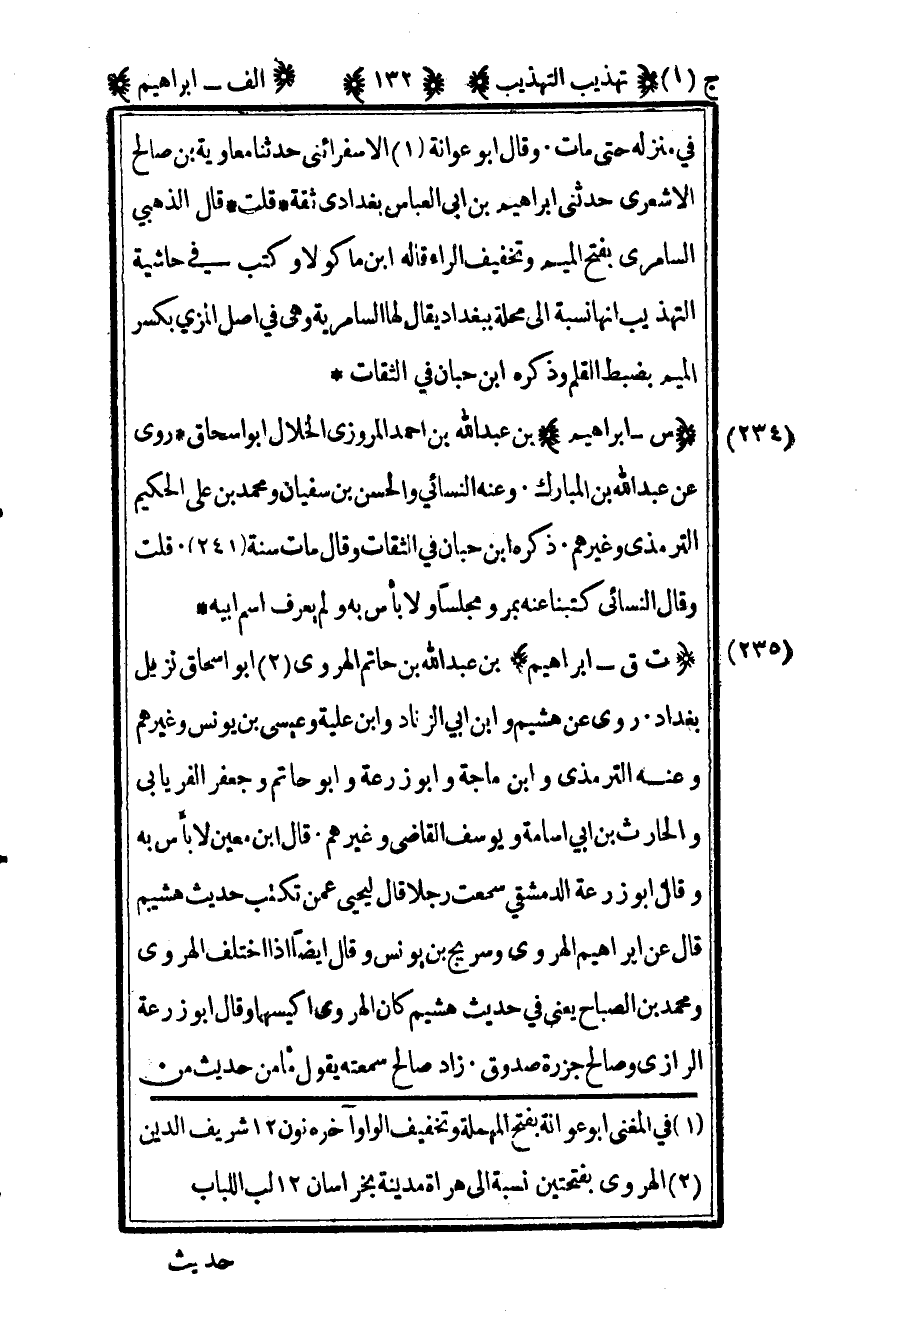 ج (١) ﴿ تهذيب التهذيب ﴾ ﴿ ١٣٢ ﴾ ﴿ الف ــ ابراهيم ﴾
في منزله حتى مات ٠ وقال ابو عوانة (١) الاسفرائنى حدثنا معاوية بن صالح
الاشعرى حدثنى ابراهيم بن ابى العباس بغدادى ثقة * قلت * قال الذهبي
السامرى بفتح الميم وتخفيف الراء قاله ابن ماكولا وكتب في حاشية
التهذيب انها نسبة الى محلة ببغداد يقال لها السامرية وهى في اصل المزي بكسر
الميم بضبط القلم وذكره ابن حبان في الثقات *
(٢٣٤) ﴿ س ــ ابراهيم ﴾ بن عبدالله بن احمد المروزى الخلال ابو اسحاق * روى
عن عبدالله بن المبارك ٠ وعنه النسائي والحسن بن سفيان ومحمد بن على الحكيم
الترمذى وغيرهم ٠ ذكره ابن حبان في الثقات وقال مات سنة (٢٤١) ٠ قلت
وقال النسائى كتبنا عنه بمرو مجلسًا ولا بأس به ولم يعرف اسم ابيه *
(٢٣٥) ﴿ ت ق ــ ابراهيم ﴾ بن عبدالله بن حاتم الهروى (٢) ابو اسحاق نزيل
بغداد ٠ روى عن هشيم وابن ابي الزناد وابن علية وعيسى بن يونس وغيرهم
وعنه الترمذى وابن ماجة وابو زرعة وابو حاتم وجعفر الفريابى
والحارث بن ابي اسامة ويوسف القاضى وغيرهم ٠ قال ابن معين لا بأس به
وقال ابو زرعة الدمشقي سمعت رجلا قال ليحيى عمن تكتب حديث هشيم
قال عن ابراهيم الهروى وسريج بن يونس وقال ايضًا اذا اختلف الهروى
ومحمد بن الصباح يعنى في حديث هشيم كان الهروى اكيسهما وقال ابو زرعة
الرازى وصالح جزرة صدوق ٠ زاد صالح سمعته يقول ما من حديث من
(١) في المغنى ابو عوانة بفتح المهملة وتخفيف الواو آخره نون ١٢ شريف الدين
(٢) الهروى بفتحتين نسبة الى هراة مدينة بخراسان ١٢ لب اللباب
حديث